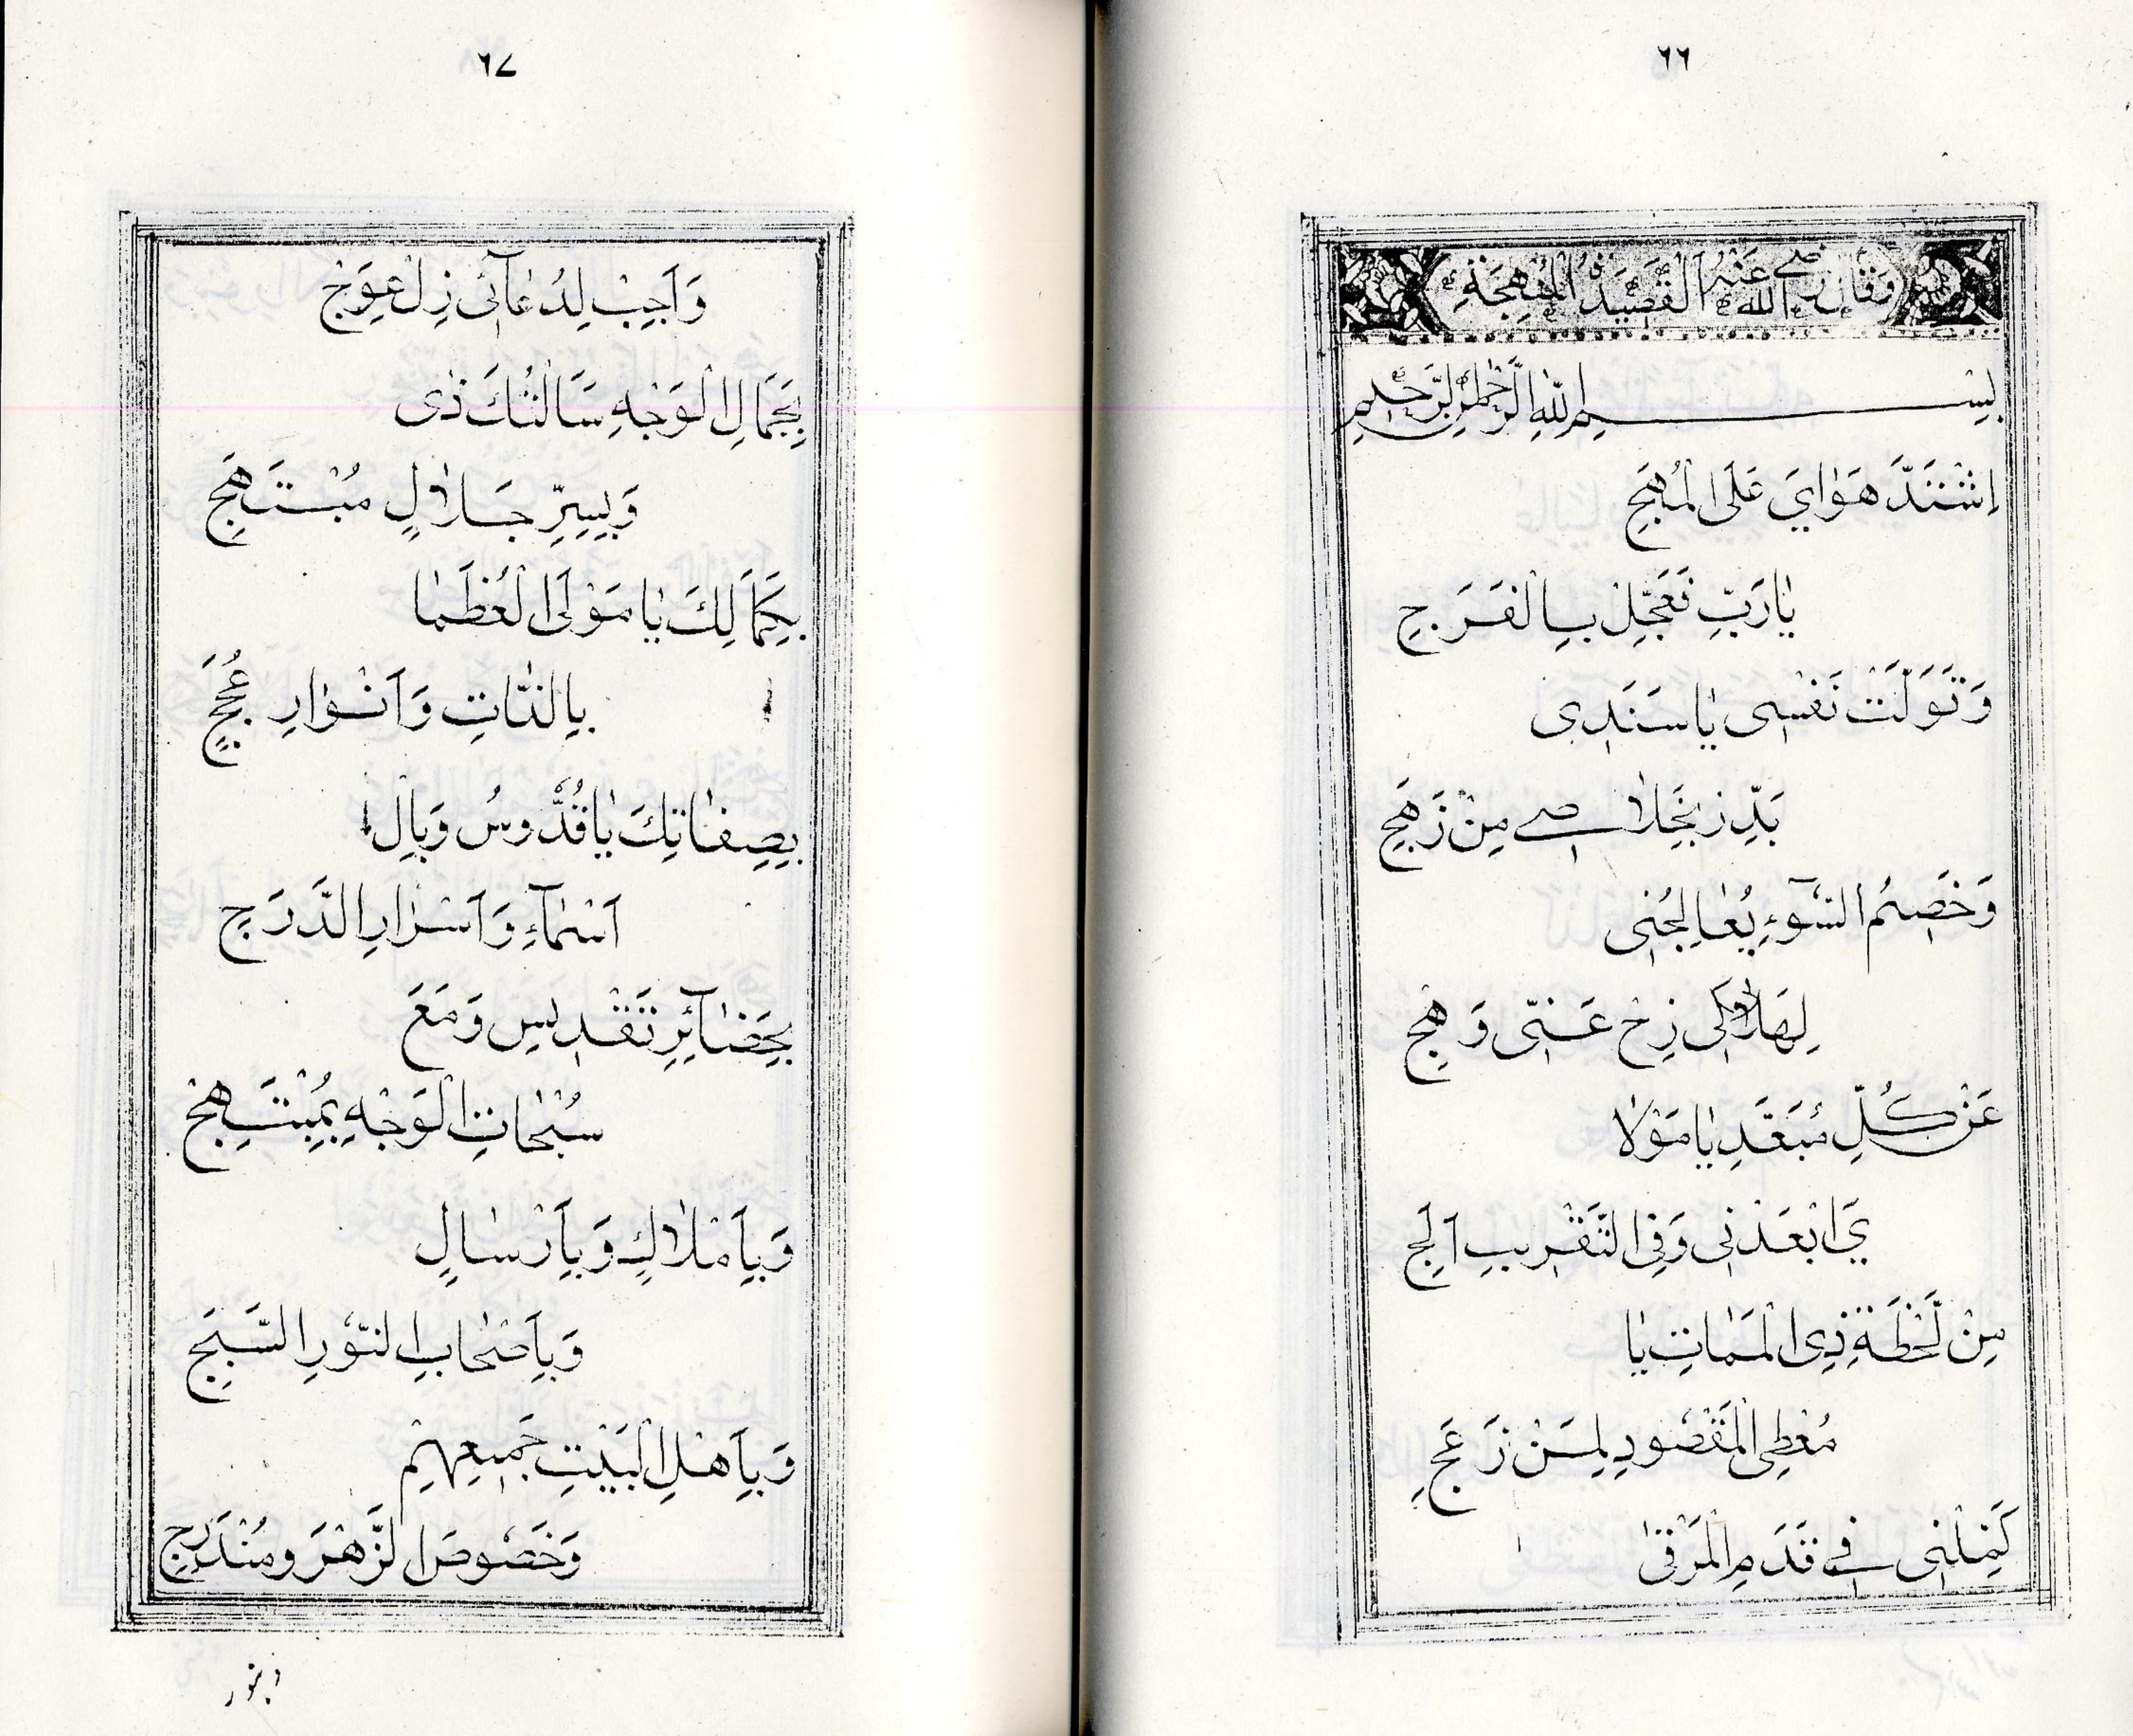 ٦٦
وَقَالَ رَضِيَ اللهُ عَنْهُ الْقَصِيدَةُ الْمُبْهِجَةُ
بِسْمِ اللّٰهِ الرَّحْمٰنِ الرَّحِيمِ
اِشْتَدَّ هَوَايَ عَلَى الْمُهَجِ
يَا رَبِّ فَعَجِّلْ بِالْفَرَجِ
وَتَوَلَّتْ نَفْسِى يَا سَنَدِى
بَدِّرْ بِخَلَاصِى مِنْ زَهَجِ
وَخَصِيمُ السُّوۤءِ يُعَالِجُنِى
لِهَلَاكِى زِحْ عَنِّى وَهَجِ
عَنْ كُلِّ مُبَعِّدِ يَا مَوْلَا
يَ ابْعَدْنِى وَفِى التَّقْرِيبِ اَلِجِ
مِنْ لَحْظَةِ ذِى الْمَمَاتِ يَا
مُعْطِى الْمَقْصُودِ لِمَنْ زَعَجِ
كَمِّلْنِى فِى قَدَمِ الْمَرْقَى
٦٧
وَاَجِبْ لِدُعَاۤئِى زِلْ عِوَجْ
بِجَمَالِ الْوَجْهِ سَاَلْتُكَ ذِى
وَبِسِرِّ جَلَالٍ مُبْتَهَجِ
بِكَمَالِكَ يَا مَوْلَى الْعُظَمَا
بِالذَّاتِ وَاَنْوَارِ حُجَجٍ
بِصِفَاتِكَ يَا قُدُّوسُ وَبِالْ
اَسْمَاۤءِ وَاَسْرَارِ الدَّرَجِ
بِحَضَاۤئِرِ تَقْدِيسٍ وَمَعَ
سُبُحَاتِ الْوَجْهِ بِمُبْتَهِجْ
وَبِاَمْلَاكٍ وَبِاَرْسَالٍ
وَبِاَصْحَابِ النُّورِ السَّبِجِ
وَبِاَهْلِ الْبَيْتِ جَمِيعِهِمْ
وَخُصُوصَ الزَّهْرَ وَمُنْدَرِجِ
وبنور